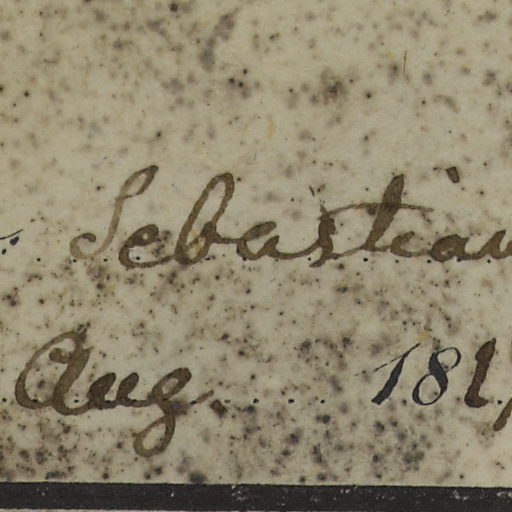 Sebastian
Aug. 181